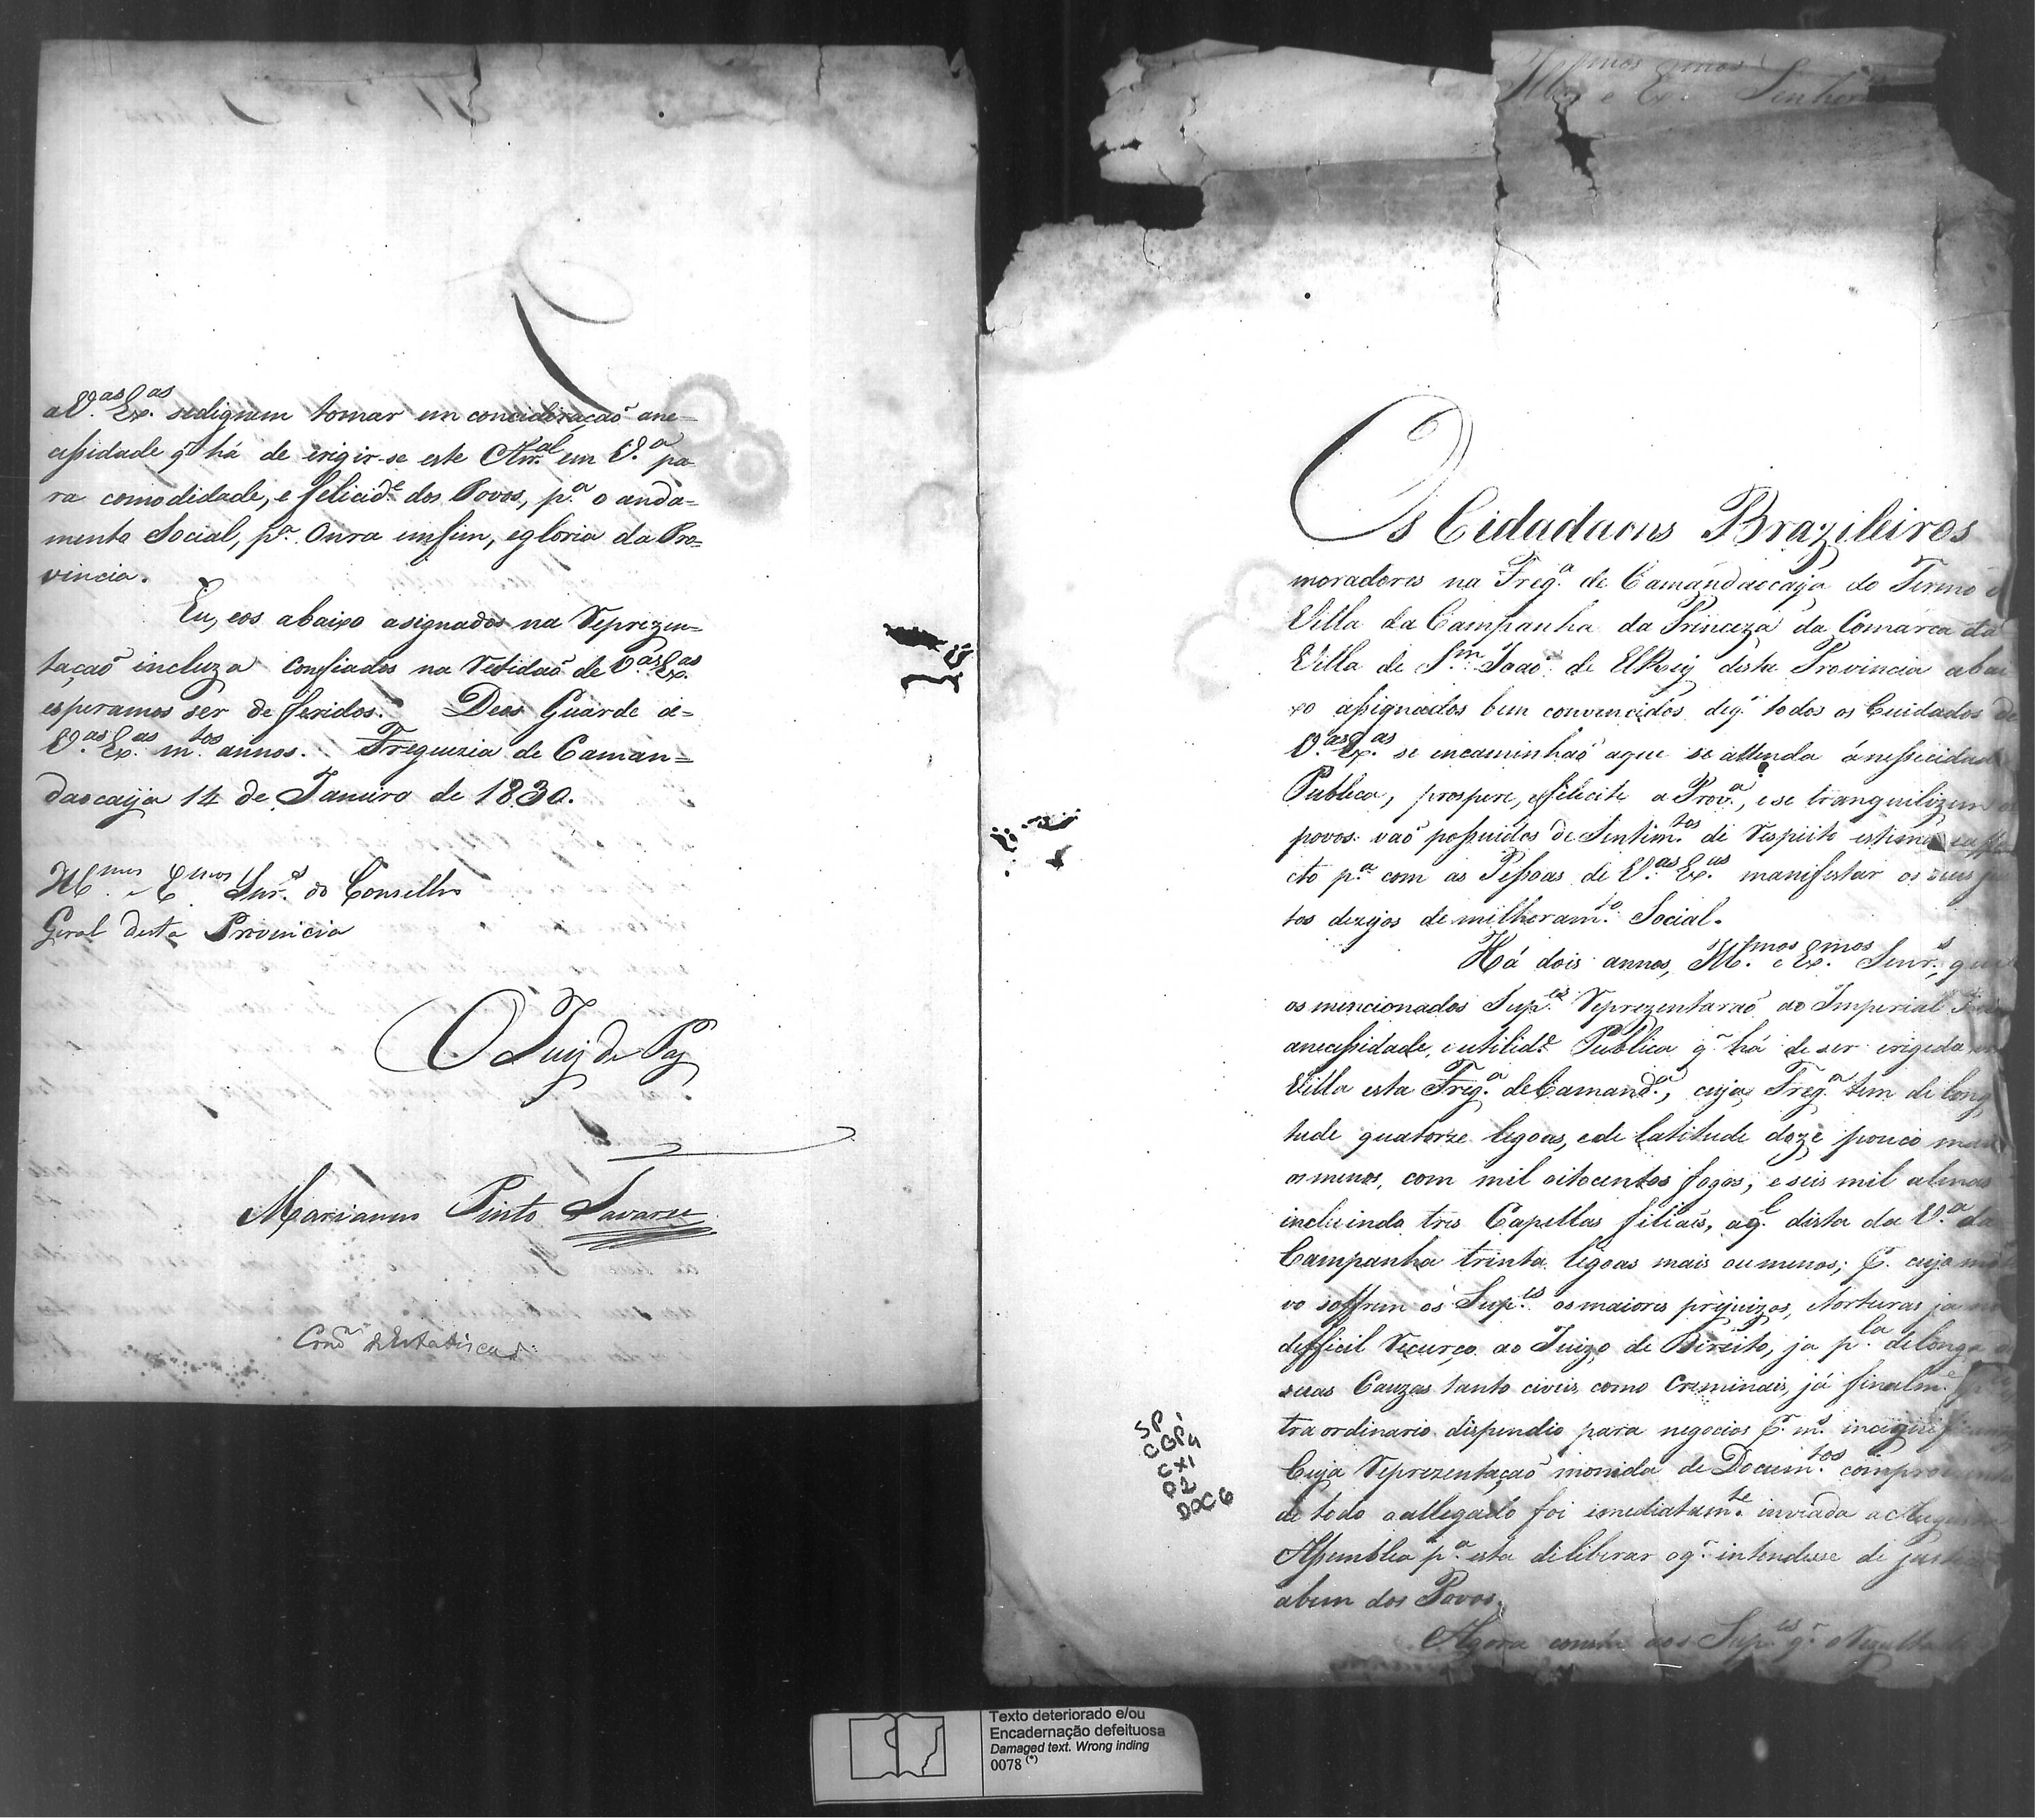 a V.as Ex.as sedignem tomar em concideração ane-
cessidade q̃ há de erigir-se este Arr.al em V.a pa-
ra comodidade, e felicid.e dos Povos, p.a o anda-
mento Social, p.a Onra emfim, egloria da Pro=
vincia.
Eu, eos abaixo asignados na Reprezen=
tação incluza confiados na Retidaõ de V.as Ex.as
esperamos ser de feridos. Deos Guarde a=
V.as Ex.as m.tos annos. Freguezia de Caman=
daocaija 14 de Janeiro de 1830.
Ill.mos e E.mos Snr.s do Conselho
Geral desta Provincia
O Juiz de Paz
Marianno Pinto Tavares
Com.am d'Estatisca
Ill.mos e Ex.mos Senhores
Os Cidadaons Brazileiros
moradores na Freg.a de Camandaocaija do Termo
Villa da Campanha da Princeza da Comarca da
Villa de S.m Joaõ de ElRey desta Provincia abai
xo assignados bem convencidos deq.̃ todos os Cuidados de
V.as Ex.as se encaminhaõ aque se attenda ánessecidade
Publica, prospere, efelicite a Prov.a, ese tranquilizem
povos: vaõ possuidos de Sentim.tos de Respeito estima eaffe
cto p.a com as Pessoas de V.as Ex.as manifestar os seus
tos dezejos de milhoram.to Social.
Há dois annos, Ill.mos e Ex.mos Senr.s, que
os mencionados Sup.es Reprezentaraõ ao Imperial
anecessidade, eutilid.e Publica q̃ há de ser erigeda
Villa esta Freg.a deCamand.a, cuja Freg.a tem de long
tude quatorze legoas, ede latitude doze pouco mais
ou menos, com mil oitocentos fogos, e seis mil almas
incluindo tres Capellas filiais, aq.l dista da V.a da
Campanha trinta legoas mais oumenos; P. cujo moti
vo soffrem os Sup.es osmaiores prejuizos, etorturas ja no
defficil Recurço ao Juizo de Direito, ja p.la delonga
suas Cauzas tanto civeis como Criminais, já finalm.e
traordinario dispendio para negocios P. m.s incignificant
Cuja Reprezentaçaõ monida de Docum.tos comprov
de todo oallegado foi imediatam.te inviada a Augusta
Assemblea p.a esta diliberar oq.̃ intendesse de justiça
abem dos Povos.
Agora consta aos Sup.es q.̃ oRezultado
SP i
CGP4
CX1
02
DOC 6
Texto deteriorado e/ou
Encadernação defeituosa
Damaged text. Wrong inding
0078 (*)